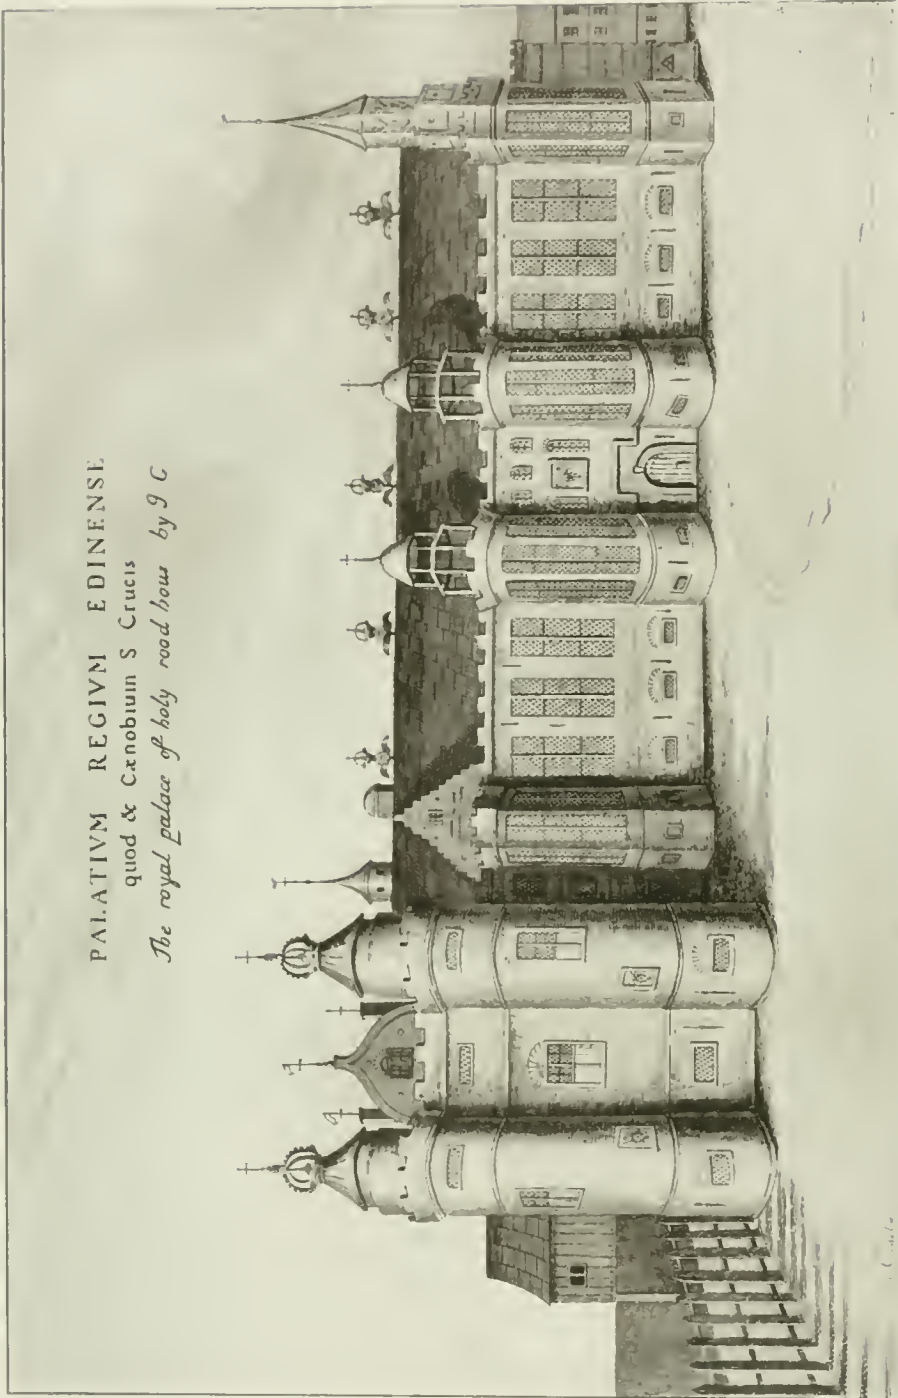 PALATIVM REGIVM EDINENSE
quod & Cænobium S Crucis
The royal palace of holy rood hous by g C